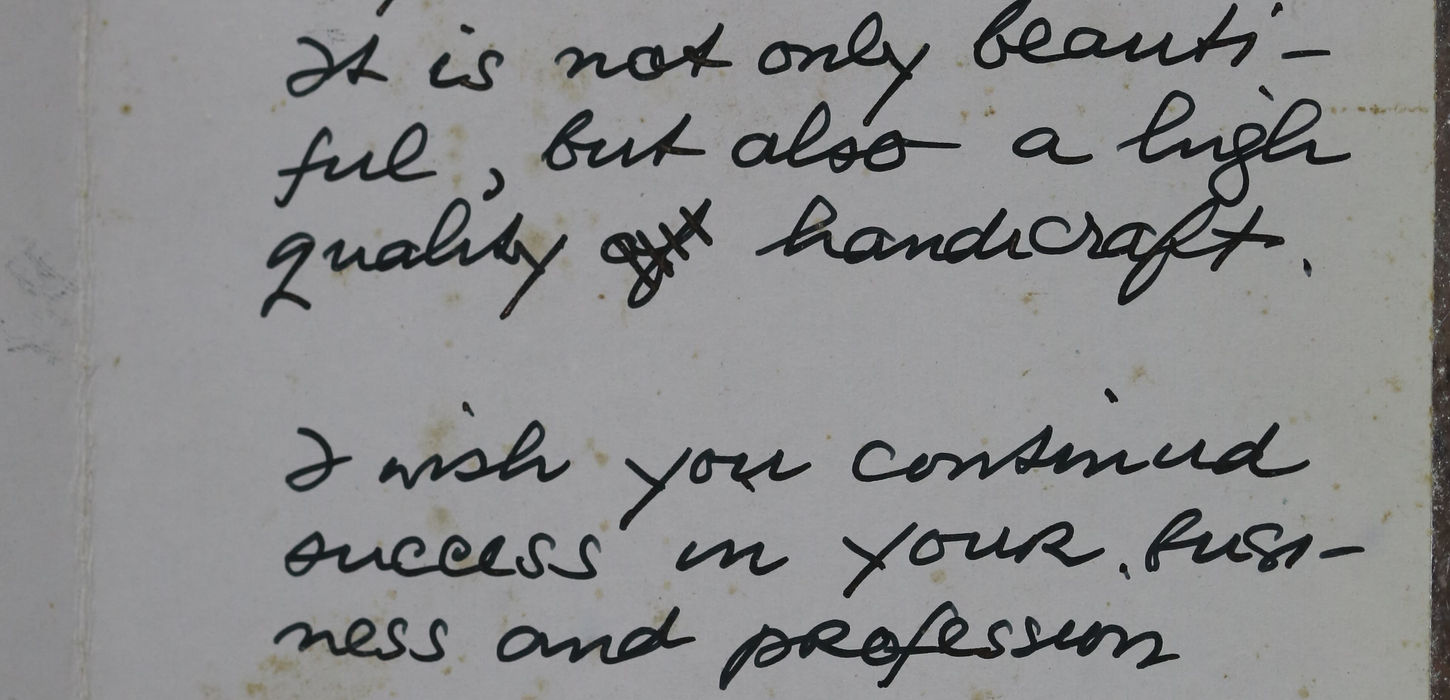 It is not only beauti-
ful, but also a high
quality handicraft.
I wish you continued
success in your busi-
ness and profession